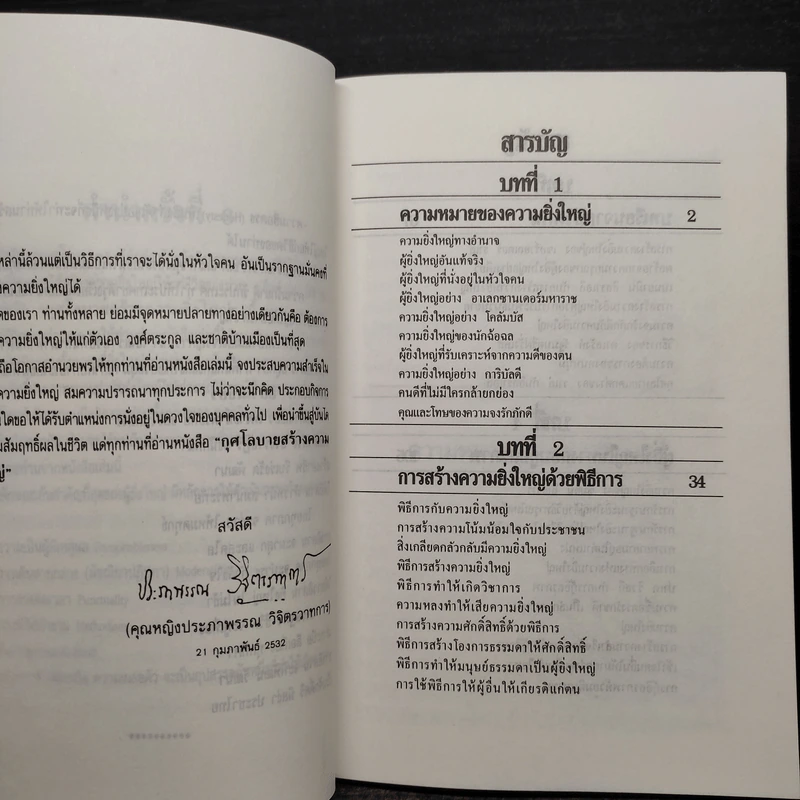 หล่านี้ล้วนแต่เป็นวิธีการที่เราจะได้นั่งในหัวใจคน อันเป็นรากฐานมั่นคงที่
งความยิ่งใหญ่ได้
ดของเรา ท่านทั้งหลาย ย่อมมีจุดหมายปลายทางอย่างเดียวกันคือ ต้องการ
ความยิ่งใหญ่ให้แก่ตัวเอง วงศ์ตระกูล และชาติบ้านเมืองเป็นที่สุด
ถือโอกาสอำนวยพรให้ทุกท่านที่อ่านหนังสือเล่มนี้ จงประสบความสำเร็จใน
ความยิ่งใหญ่ สมความปรารถนาทุกประการ ไม่ว่าจะนึกคิด ประกอบกิจการ
นใดขอให้ได้รับตำแหน่งการนั่งอยู่ในดวงใจของบุคคลทั่วไป เพื่อนำขึ้นสู่บันได
มสัมฤทธิ์ผลในชีวิต แด่ทุกท่านที่อ่านหนังสือ "กุศโลบายสร้างความ
ญ่"
สวัสดี
ประภาพรรณ วิจิตรวาทการ
(คุณหญิงประภาพรรณ วิจิตรวาทการ)
21 กุมภาพันธ์ 2532
สารบัญ
บทที่ 1
ความหมายของความยิ่งใหญ่ 2
ความยิ่งใหญ่ทางอำนาจ
ผู้ยิ่งใหญ่อันแท้จริง
ผู้ยิ่งใหญ่ที่นั่งอยู่ในหัวใจคน
ผู้ยิ่งใหญ่อย่าง อาเลกซานเดอร์มหาราช
ความยิ่งใหญ่อย่าง โคลัมบัส
ความยิ่งใหญ่ของนักฉ้อฉล
ผู้ยิ่งใหญ่ที่รับเคราะห์จากความดีของตน
ความยิ่งใหญ่อย่าง การิบัลดี
คนดีที่ไม่มีใครกล้ายกย่อง
คุณและโทษของความจงรักภักดี
บทที่ 2
การสร้างความยิ่งใหญ่ด้วยพิธีการ 34
พิธีการกับความยิ่งใหญ่
การสร้างความโน้มน้อมใจกับประชาชน
สิ่งเกลียดกลัวกลับมีความยิ่งใหญ่
พิธีการสร้างความยิ่งใหญ่
พิธีการทำให้เกิดวิชาการ
ความหลงทำให้เสียความยิ่งใหญ่
การสร้างความศักดิ์สิทธิ์ด้วยพิธีการ
พิธีการสร้างโองการธรรมดาให้ศักดิ์สิทธิ์
พิธีการทำให้มนุษย์ธรรมดาเป็นผู้ยิ่งใหญ่
การใช้พิธีการให้ผู้อื่นให้เกียรติแก่ตน